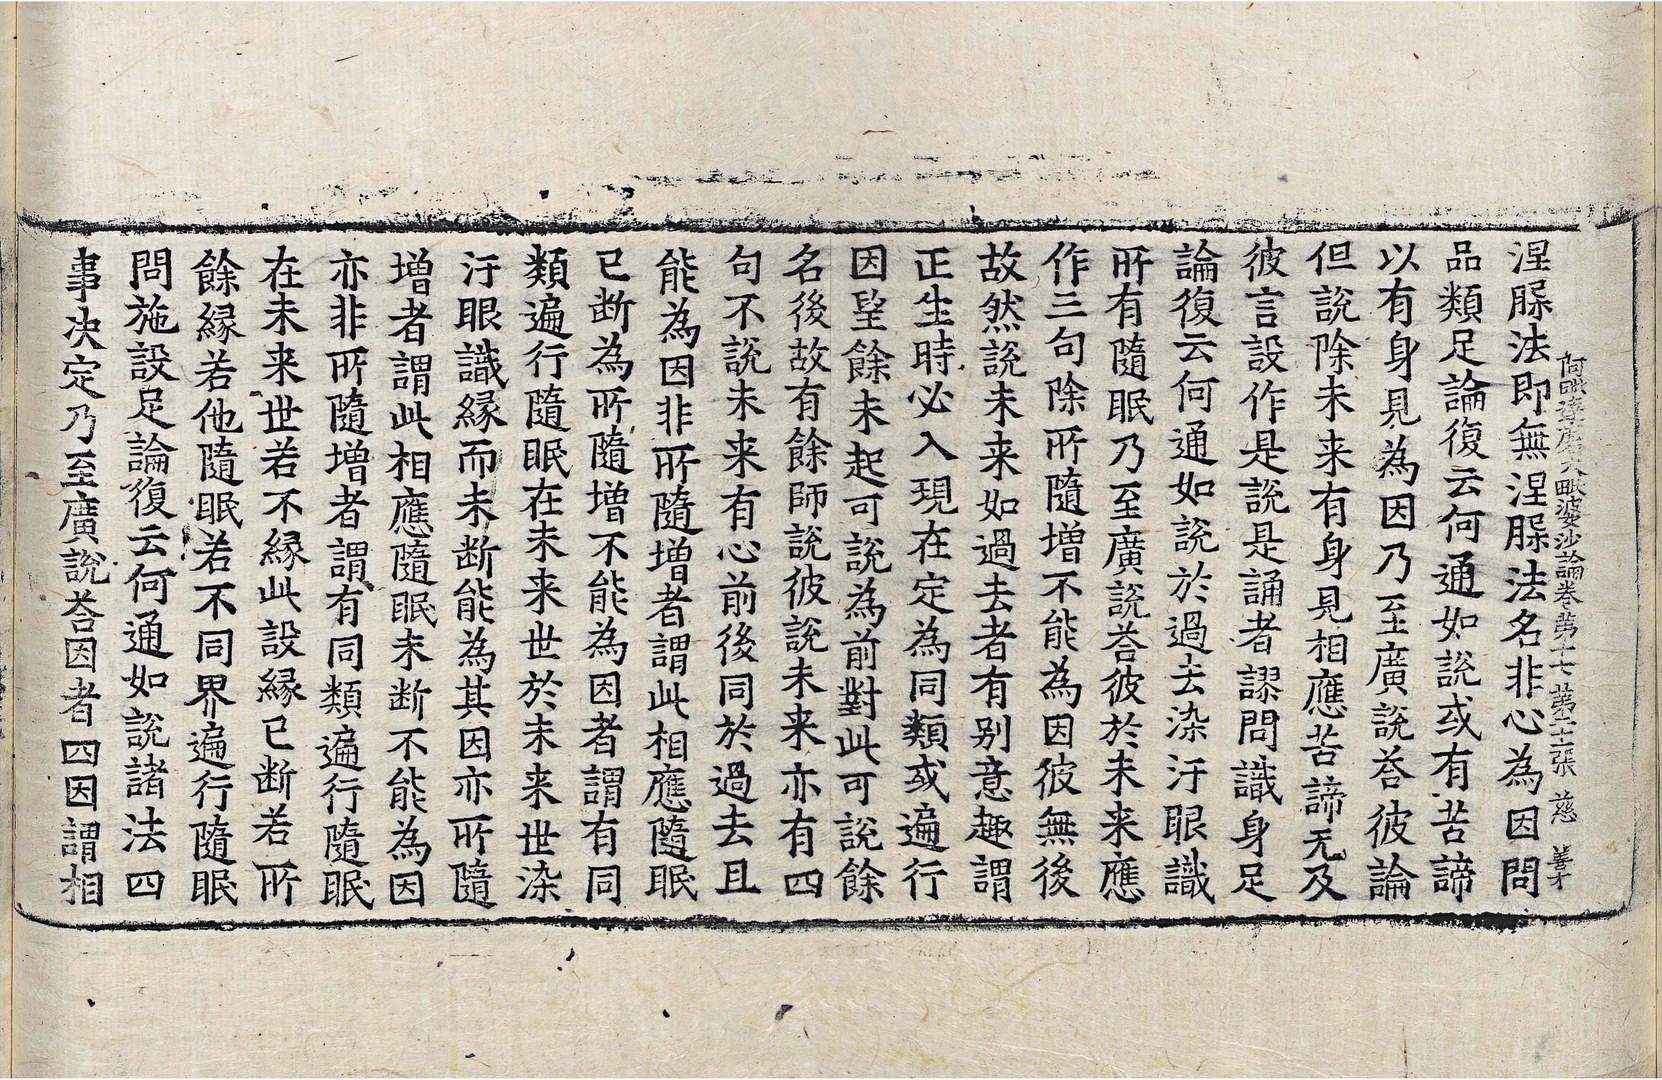 阿毗達磨大毗婆沙論卷第十七 第十二張 慈 善才
涅䐁法即無涅䐁法名非心為因問
品類足論復云何通如說或有苦諦
以有身見為因乃至廣說荅彼論
但說除未来有身見相應苦諦无及
彼言設作是說是誦者謬問識身足
論復云何通如說於過去染汙眼識
所有隨眠乃至廣說荅彼於未来應
作三句除所隨增不能為因彼無後
故然說未来如過去者有别意趣謂
正生時必入現在定為同類或遍行
因望餘未起可說為前對此可說餘
名後故有餘師說彼說未来亦有四
句不說未来有心前後同於過去且
能為因非所隨增者謂此相應隨眠
已断為所隨增不能為因者謂有同
類遍行隨眠在未来世於未来世染
汙眼識緣而未断能為其因亦所隨
增者謂此相應隨眠未断不能為因
亦非所隨增者謂有同類遍行隨眠
在未来世若不緣此設緣已断若所
餘緣若他隨眠若不同界遍行隨眠
問施設足論復云何通如說諸法四
事决定乃至廣說荅因者四因謂相